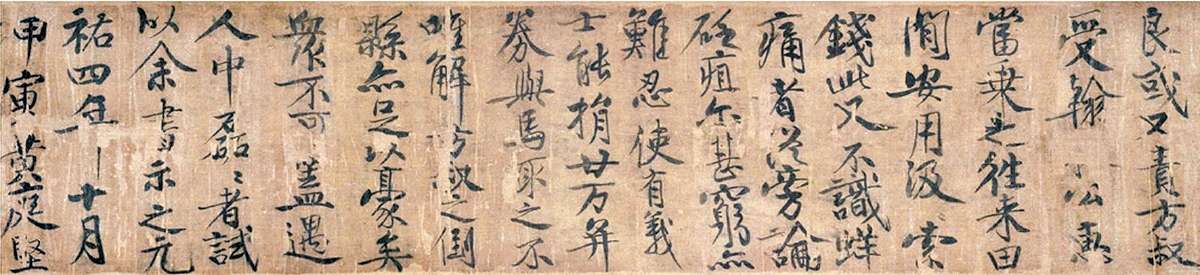 良或又責方叔
受翰公惠
當乗之往来田
閒安用汲索
錢此又不識蛘
痛者從旁論
砭疽尓甚窮亦
難忍使有義
士能捐廿万并
券與馬取之不
唯解方叔之倒
縣亦足以豪矣
衆不可蓋遇
人中磊〻者試
以余書示之元
祐四年十月
甲寅黄庭堅